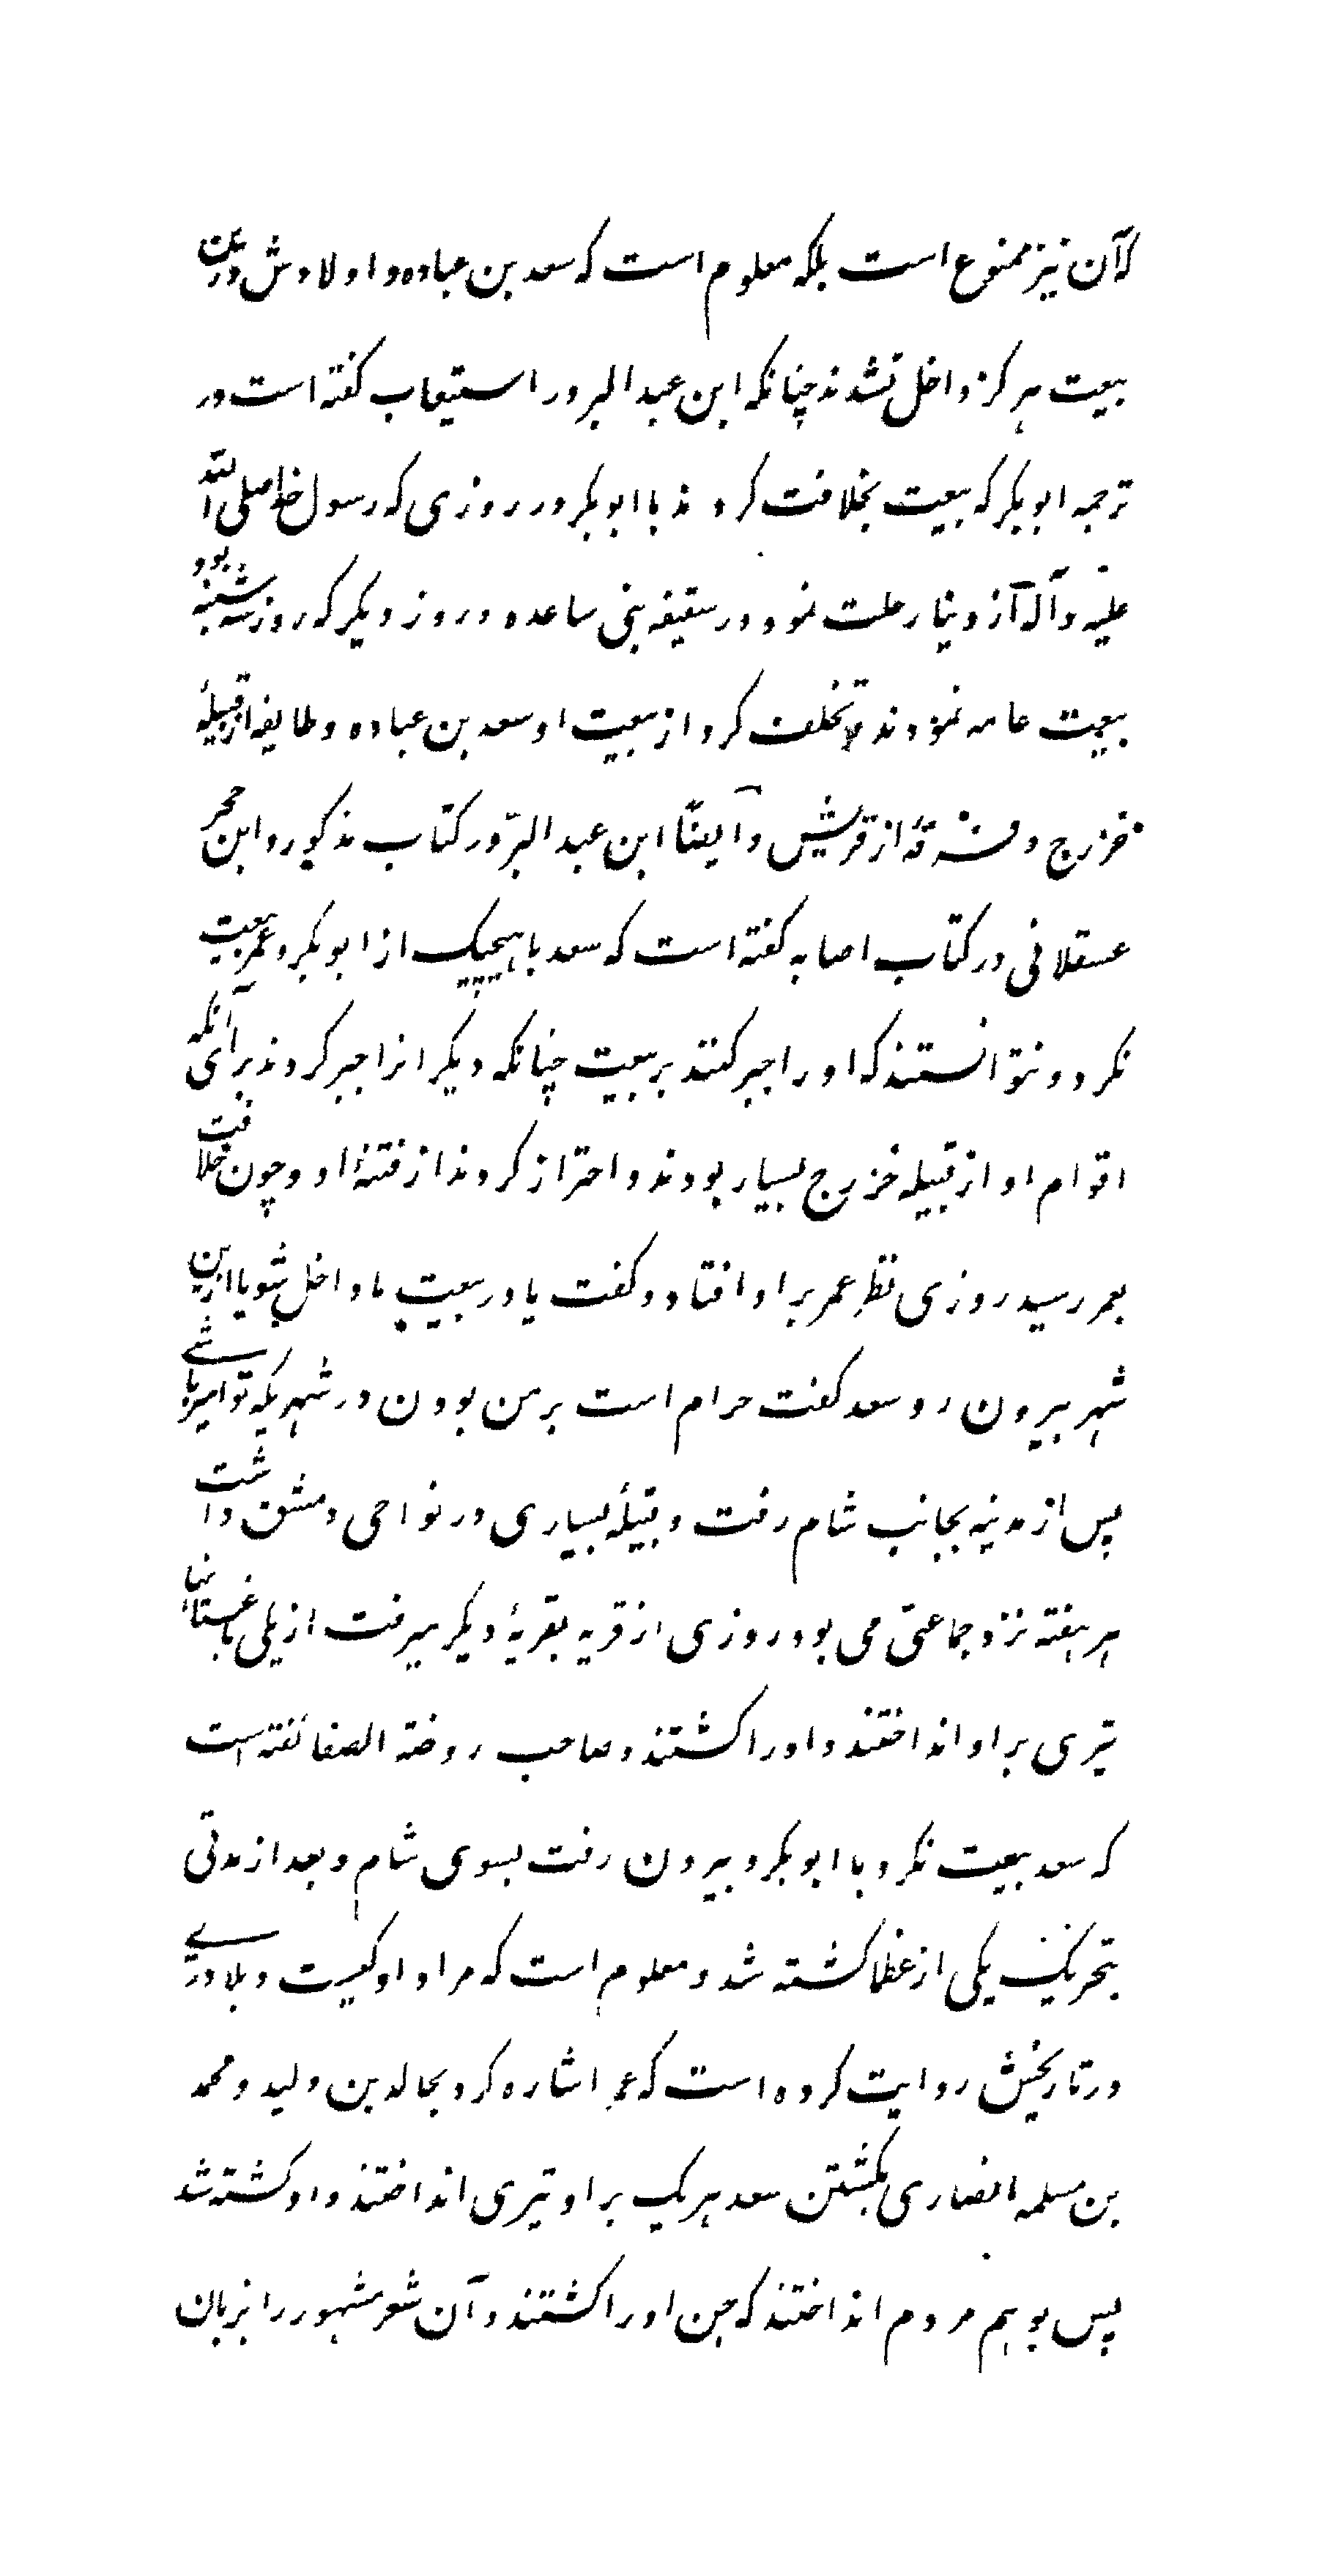 که آن نیز ممنوع است بلکه معلوم است که سعد بن عباده و اولادش درین
بیعت هرگز داخل نشدند چنانکه ابن عبد البر در استیعاب گفته است در
ترجمه ابوبکر که بیعت بخلافت کردند با ابوبکر در روزی که رسول خدا صلی الله
علیه و آله از دنیا رحلت نمود در سقیفه بنی ساعده و روز دیگر که روز سه شنبه بود
بیعت عامه نمودند و تخلف کرد از بیعت او سعد بن عباده و طایفه از قبیلهٔ
خزرج و فرقهٔ از قریش و ایضًا ابن عبد البرّ در کتاب مذکور و ابن حجر
عسقلانی در کتاب اصابه گفته است که سعد با هیچیک از ابوبکر و عمر بیعت
نکرد و نتوانستند که او را جبر کنند بر بیعت چنانکه دیگرانرا جبر کردند برای آنکه
اقوام او از قبیله خزرج بسیار بودند و احتراز کردند از فتنهٔ او و چون خلافت
بعمر رسید روزی نظر عمر بر او افتاد و گفت یا در بیعت ما داخل شو یا ازین
شهر بیرون رو سعد گفت حرام است بر من بودن در شهریکه تو امیر باشی
پس از مدینه بجانب شام رفت و قبیلهٔ بسیاری در نواحی دمشق داشت
هر هفته نزد جماعتی می بود روزی از قریه بقریهٔ دیگر میرفت از یلی باغستانها
تیری بر او انداختند و او را کشتند و صاحب روضة الصفا گفته است
که سعد بیعت نکرد با ابوبکر و بیرون رفت بسوی شام و بعد از مدتی
بتحریک یکی از عظما کشته شد و معلوم است که مراد او کیست و بلادری
در تاریخش روایت کرده است که عمر اشاره کرد بخالد بن ولید و محمد
بن مسلمه انصاری بکشتن سعد هریک بر او تیری انداختند و او کشته شد
پس بوهم مردم انداختند که جن او را کشتند و آن شعر مشهور را بزبان